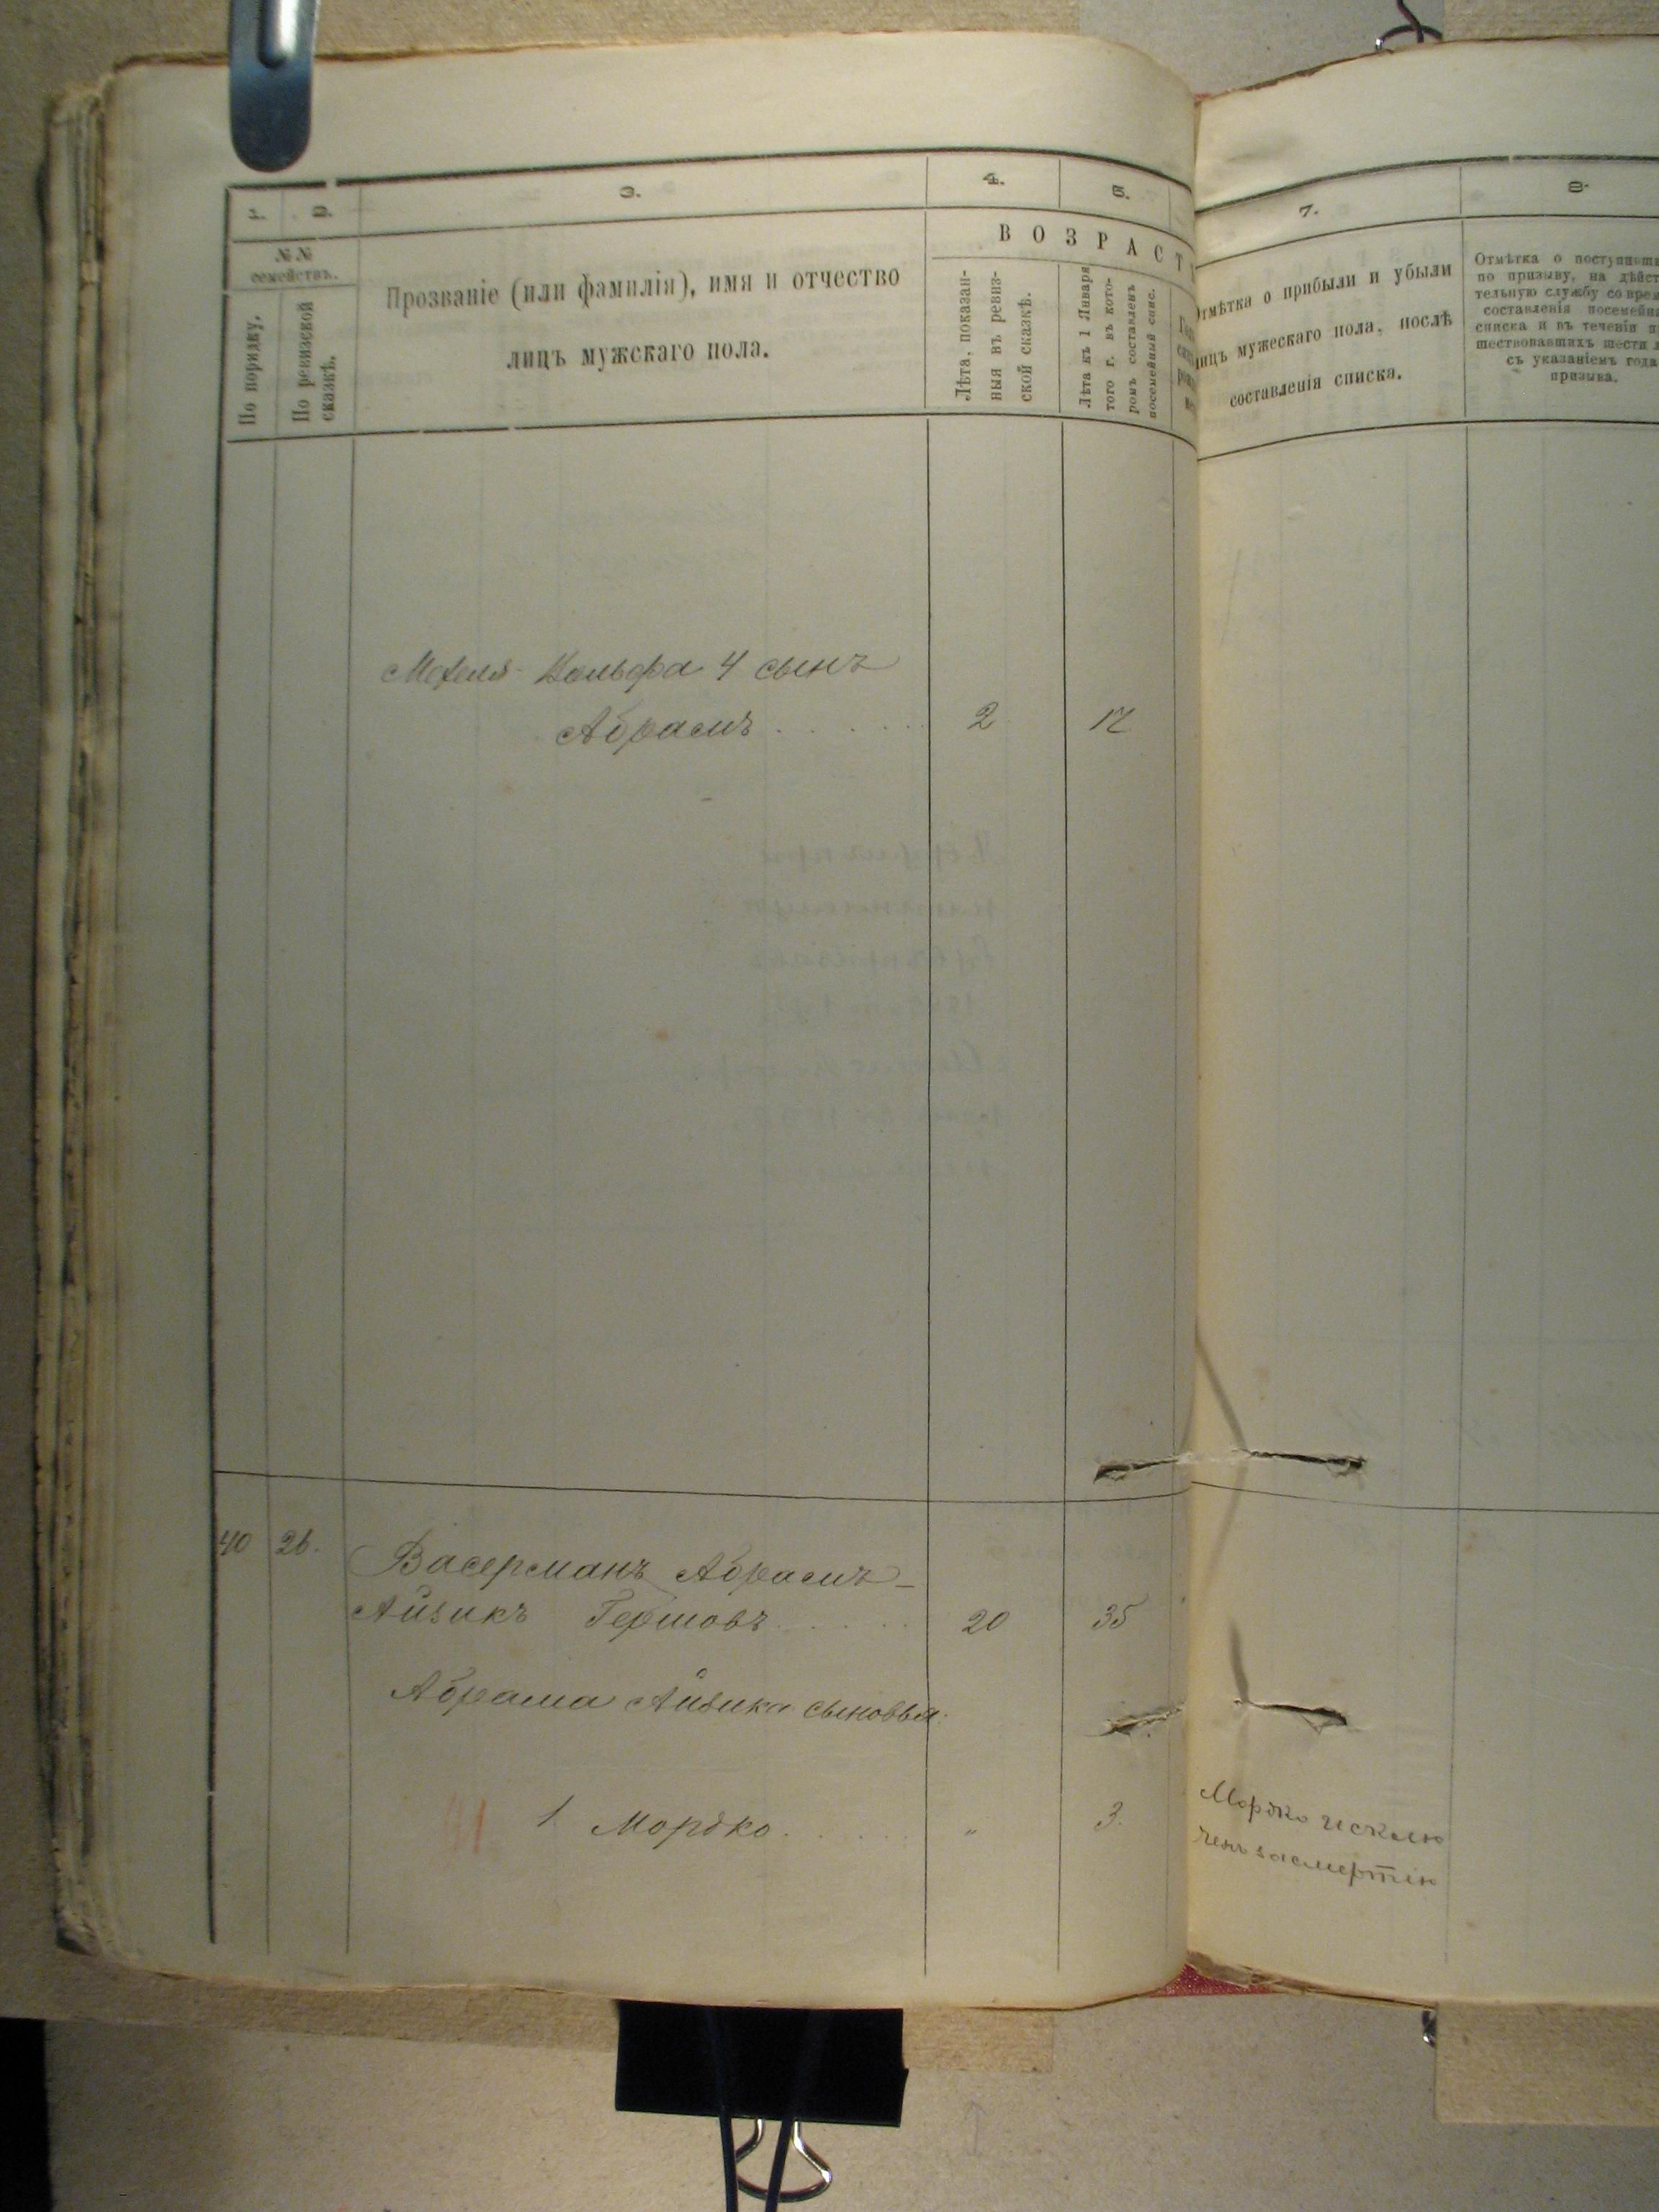 1.
2.
3.
4.
5.
№ №
семействъ.
По порядку.
По ревизской
сказкѣ.
Прозваніе (или фамилія), имя и отчество
лицъ мужскаго пола.
ВОЗРАСТ
Лѣта, показан-
ныя въ ревиз-
ской сказкѣ.
Лѣта къ 1 Января
того г. въ кото-
ромъ составленъ
посемейный спис.
Вольфа 4 сынъ
Абрамъ
2
17
40
26.
Васерманъ Абрамъ-
Айзикъ Гершовъ
20
35
Абрама Айзика сыновья:
1 Мордко
"
3.
7.
8.
Отмѣтка о прибыли и убыли
лицъ мужескаго пола, послѣ
составленія списка.
Отмѣтка о поступивш
по призыву, на дѣйст
тельную службу со врем
составленія посемейна
списка и въ теченіи п
шествовавшихъ шести л
съ указаніемъ года
призыва.
Мордко исклю
ченъ за смертію